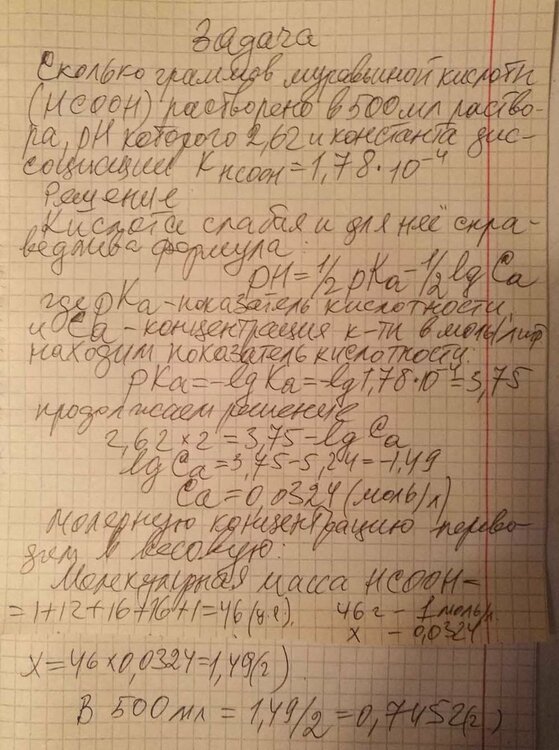 Задача
Сколько граммов муравьиной кислоты
(HCOOH) растворено в 500 мл раство-
ра, pH которого 2,62 и константа дис-
социации K HCOOH = 1,78·10⁻⁴
Решение
Кислота слабая и для неё спра-
ведлива формула:
pH = 1/2 pKa - 1/2 lg Ca
где pKa - показатель кислотности,
и Ca - концентрация к-ты в моль/литр
находим показатель кислотности:
pKa = -lg Ka = -lg 1,78·10⁻⁴ = 3,75
продолжаем решение
2,62 × 2 = 3,75 - lg Ca
lg Ca = 3,75 - 5,24 = -1,49
Ca = 0,0324 (моль/л)
Молярную концентрацию перево-
дим в весовую:
Молекулярная масса HCOOH =
= 1+12+16+16+1 = 46 (у.е.) 46 г - 1 моль/л
x - 0,0324
X = 46 × 0,0324 = 1,49 (г)
В 500 мл = 1,49/2 = 0,7452 (г)